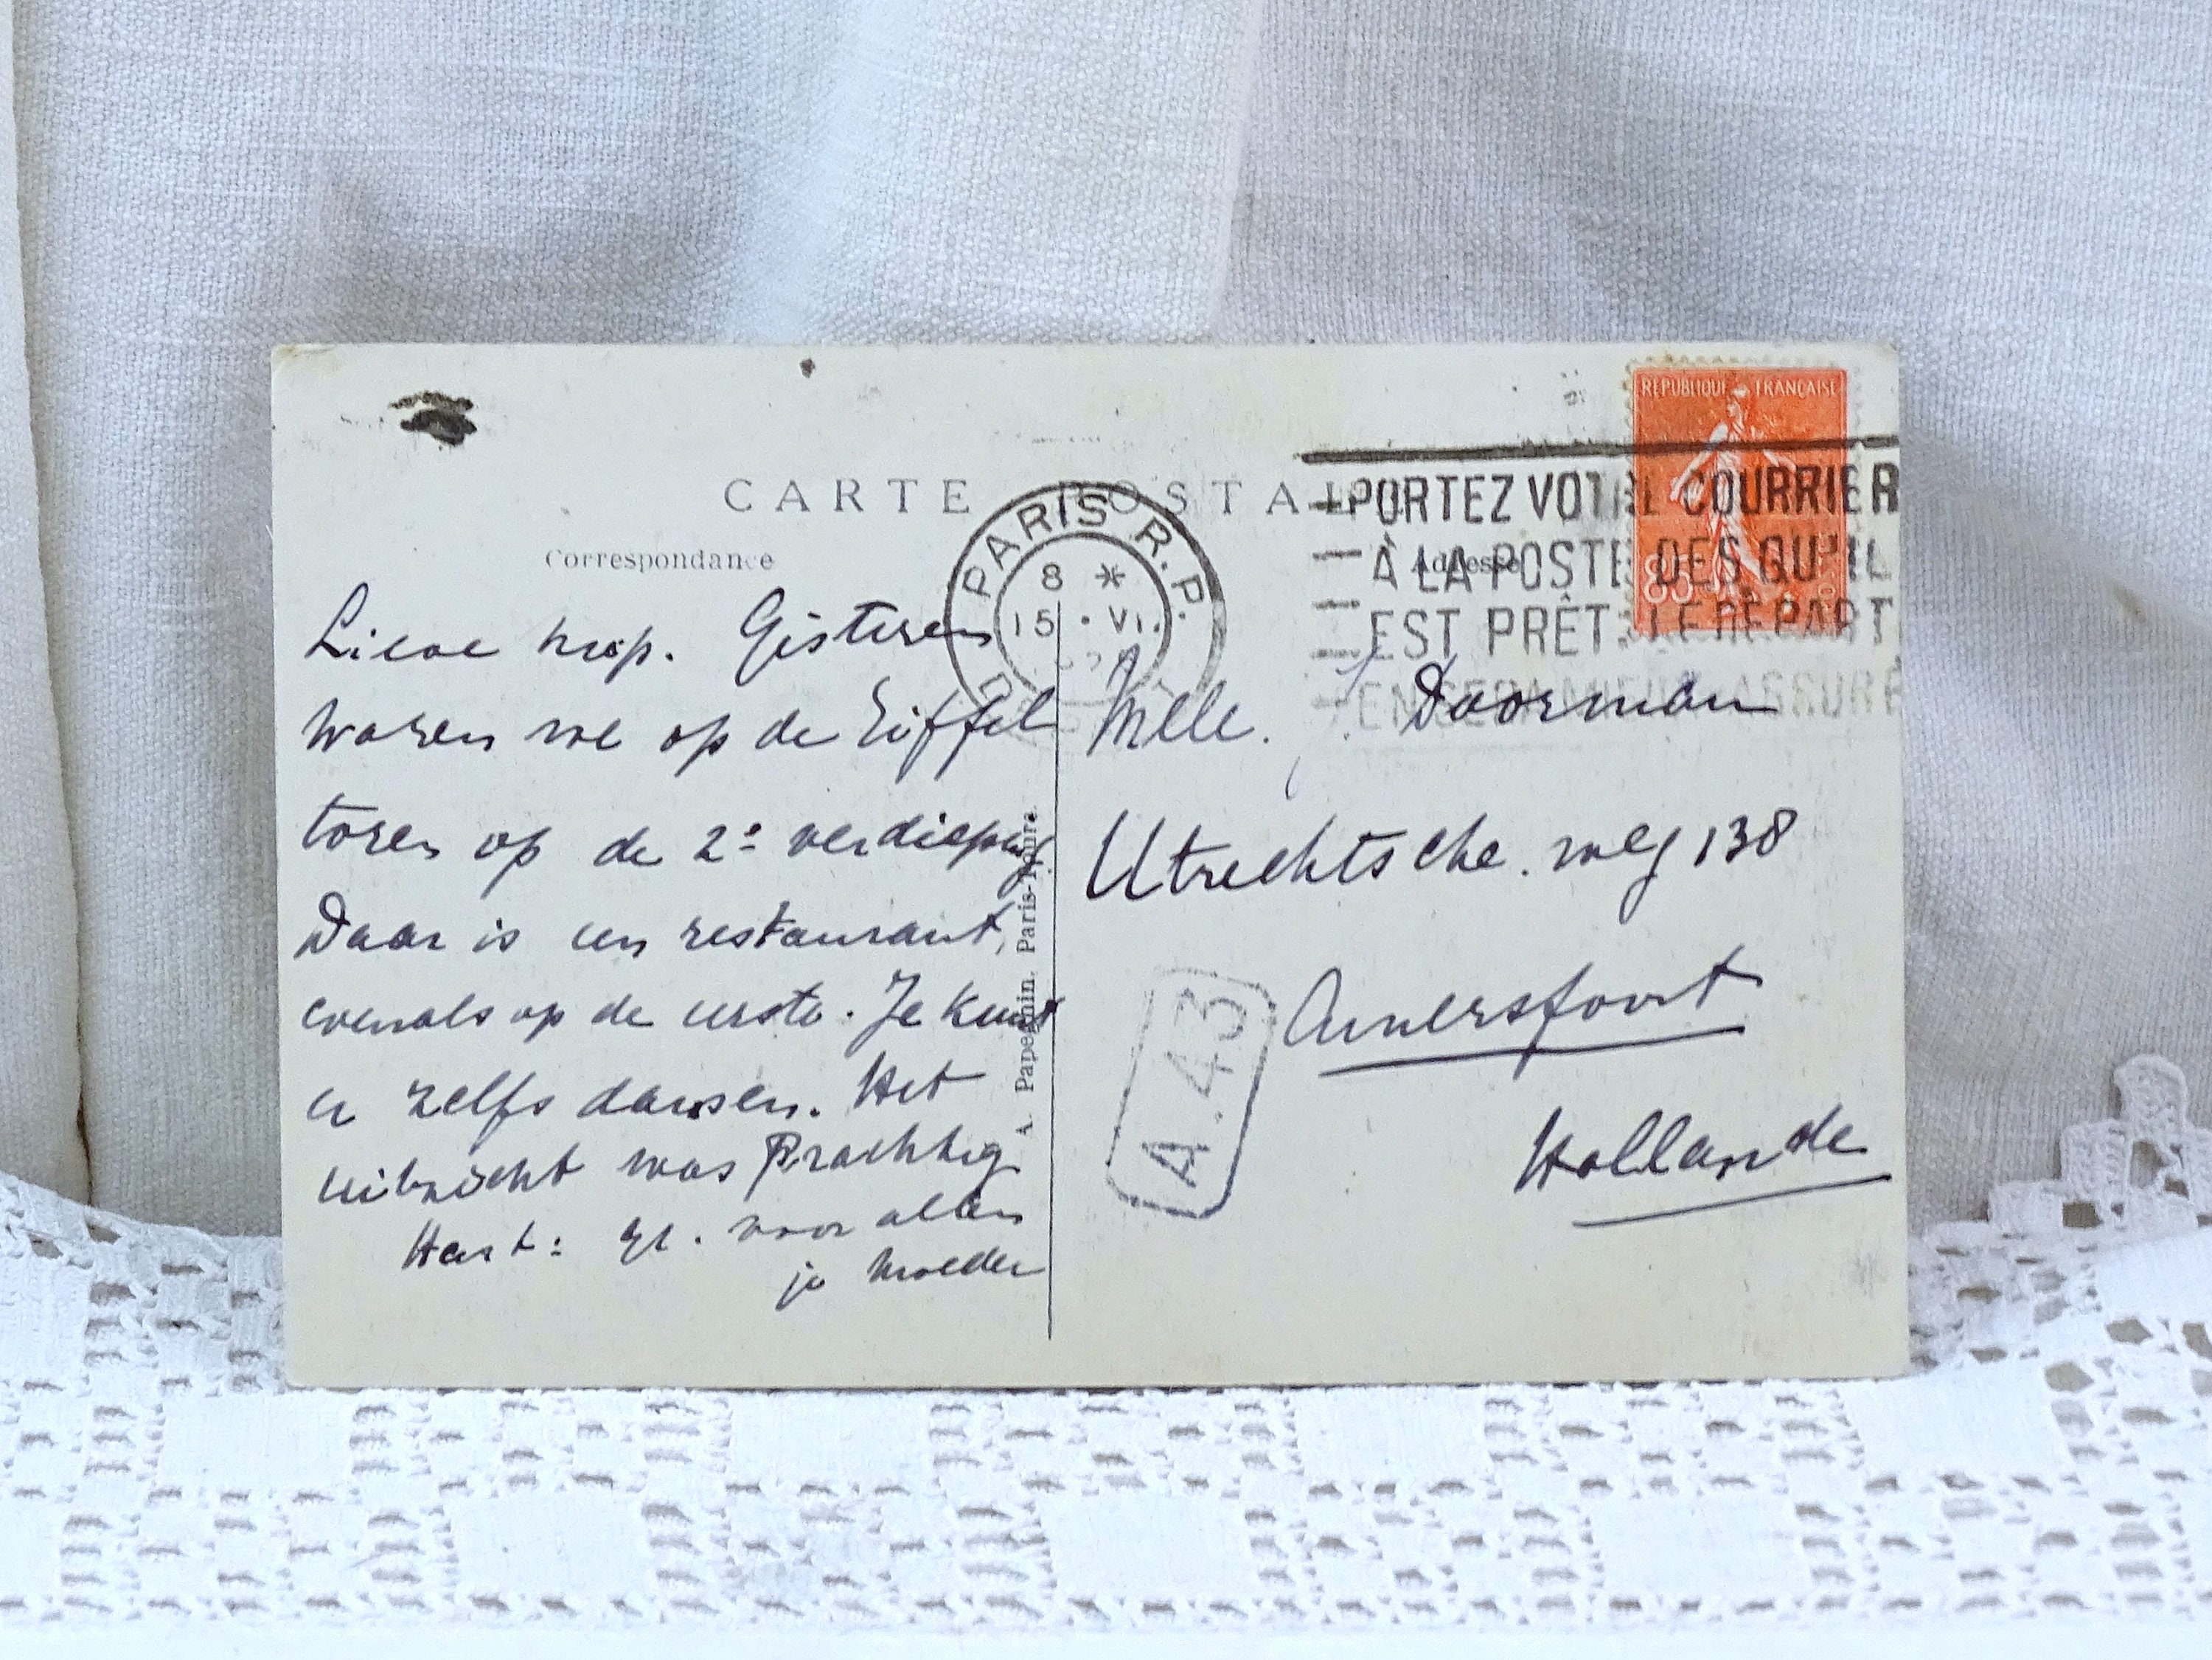 CARTE POSTALE
Correspondance
Adresse
REPUBLIQUE FRANÇAISE
85
PARIS R.P.
8 *
15 · VI.
PORTEZ VOTRE COURRIER
À LA POSTE DES QU'IL
EST PRÊT. LE DEPART
EN SERA MIEUX ASSURÉ
Lieve
Gisteren
waren we op de Eiffel
toren op de 2e verdieping
Daar is een restaurant,
evenals op de eerste. Je kunt
er zelfs dansen. Het
uitzicht was Prachtig
Hart: gr. voor allen
je moeder
A. Papeghin. Paris-Tours.
Melle. J. Doorman
Utrechtsche. weg 138
Amersfoort
Hollande
A.43